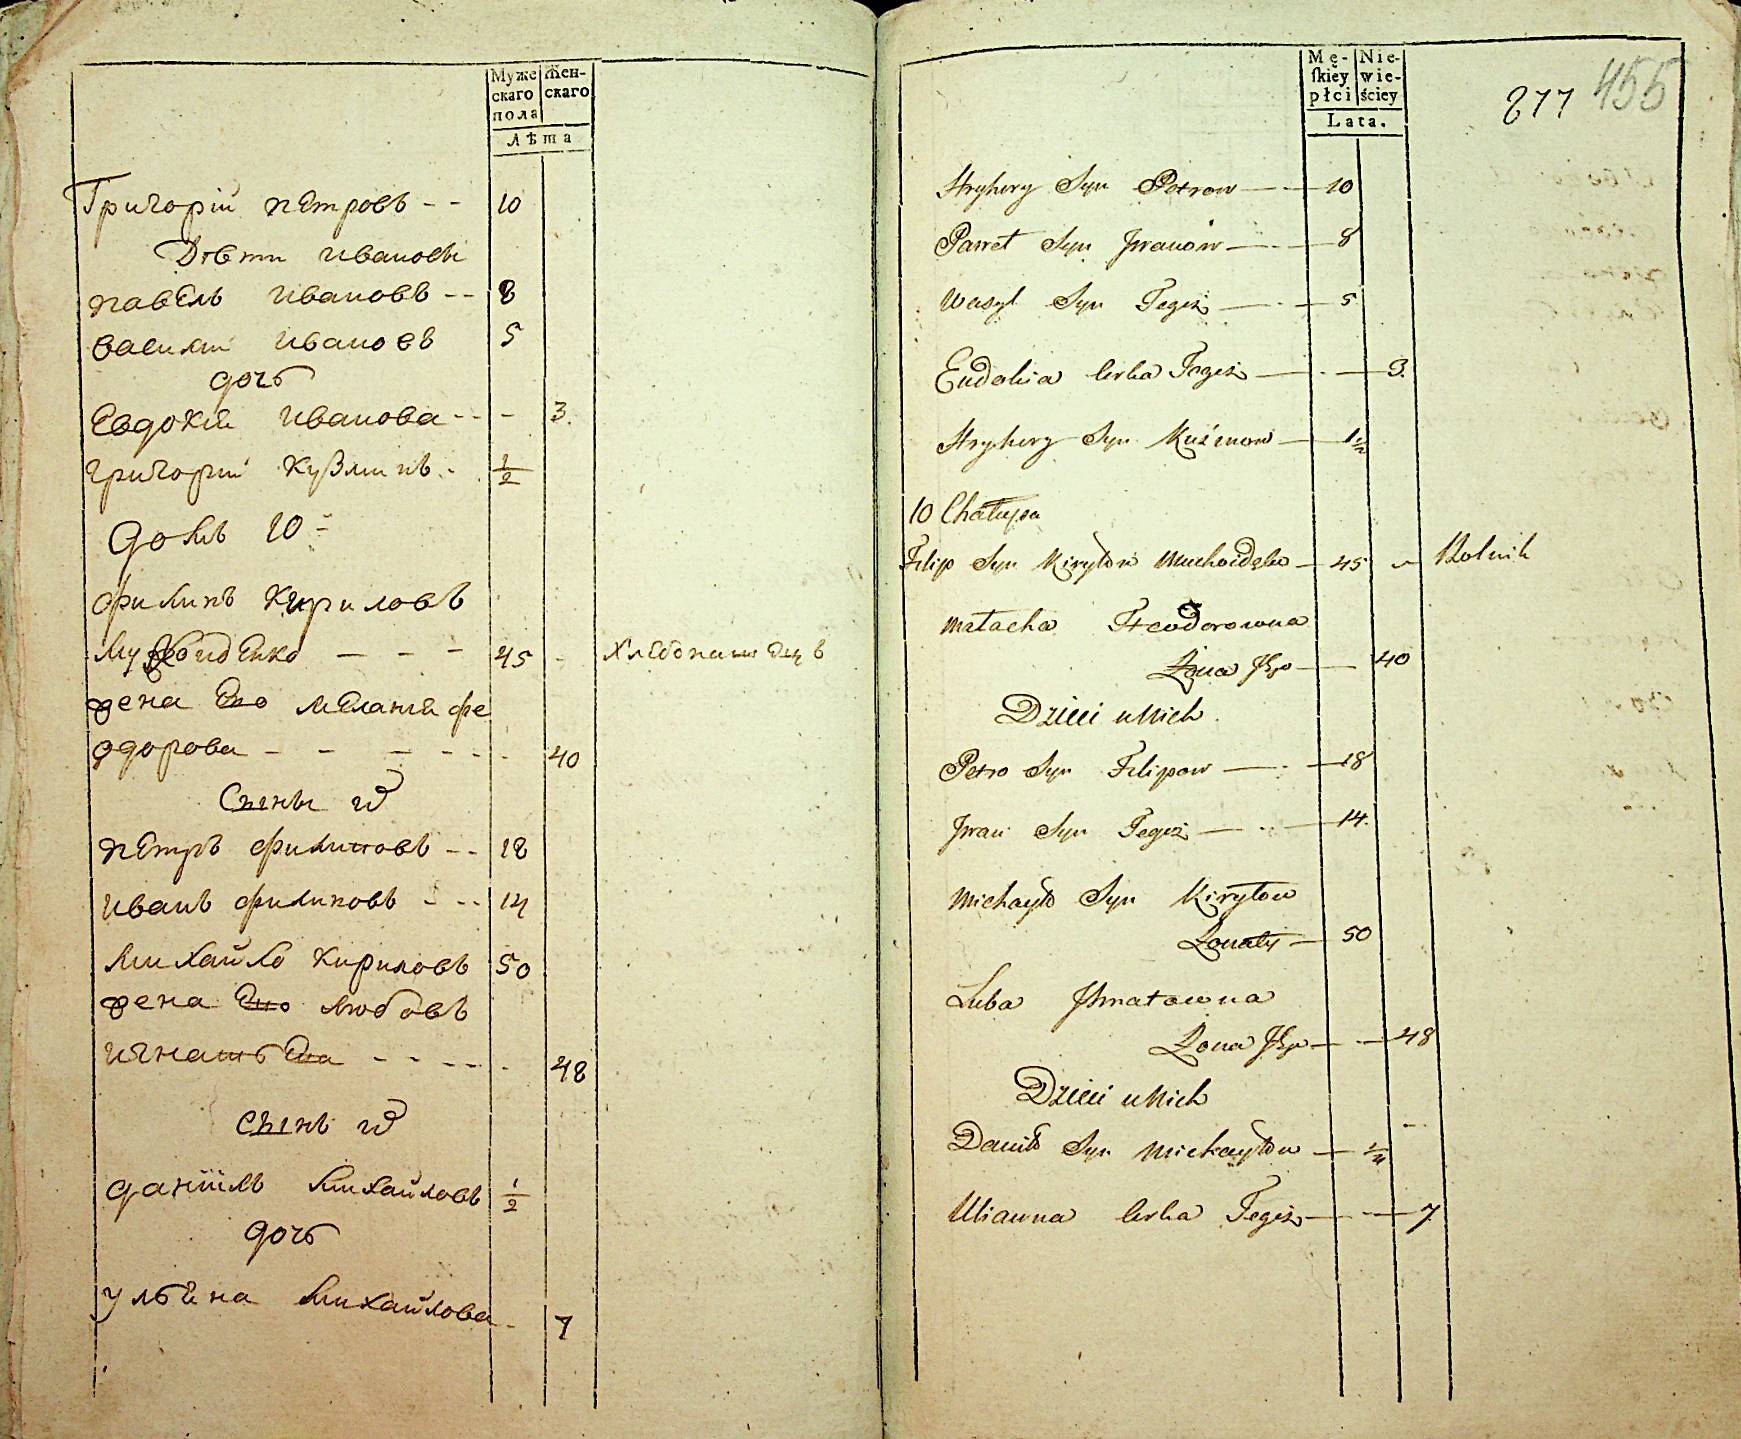 Муже
скаго
пола
Жен-
скаго
Лѣта
Григорій петровъ - - 10
Дѣти ивановы
павелъ ивановъ - - 8
василий ивановъ 5
дочь
Евдокия иванова - - - 3.
григорий Кузминъ - 1/2
домъ 10 -
филипъ Кириловъ
Мухоиденко - - - 45 - хлебопашецъ
жена Ево мелания фе
одорова - - - - - - 40
Сыны ихъ
петръ филиповъ - - 18
иванъ филиповъ - - - 14
михайло Кириловъ 50
жена Ево любовъ
игнатьева - - - - - 48
сынъ ихъ
данийлъ михайловъ 1/2
дочь
ульяна михайлова - 7
Mę-
skiey
płci
Nie-
wie-
ściey
Lata.
277 455
Hryhory Syn Petrow — 10
Paweł Syn Jwanów — 8
Wasyl Syn Tegiż — 5
Eudokia Corka Tegiż — 3.
Hryhory Syn Kuźmow — 1/2
10 Chałupa
Filip Syn Kiryłow Muchoidęko — 45 - Rolnik
Małacha Feodorowna
Żona Jego — 40
Dzieci u Nich
Petro Syn Filipow — 18
Jwan Syn Tegoż — 14.
Michayło Syn Kiryłow
Żonaty — 50
Luba Jhnatowna
Żona Jego — 48
Dzieci u Nich
Daniło Syn Michayłow — 1/2
Ulianna Corka Tegiż — 7